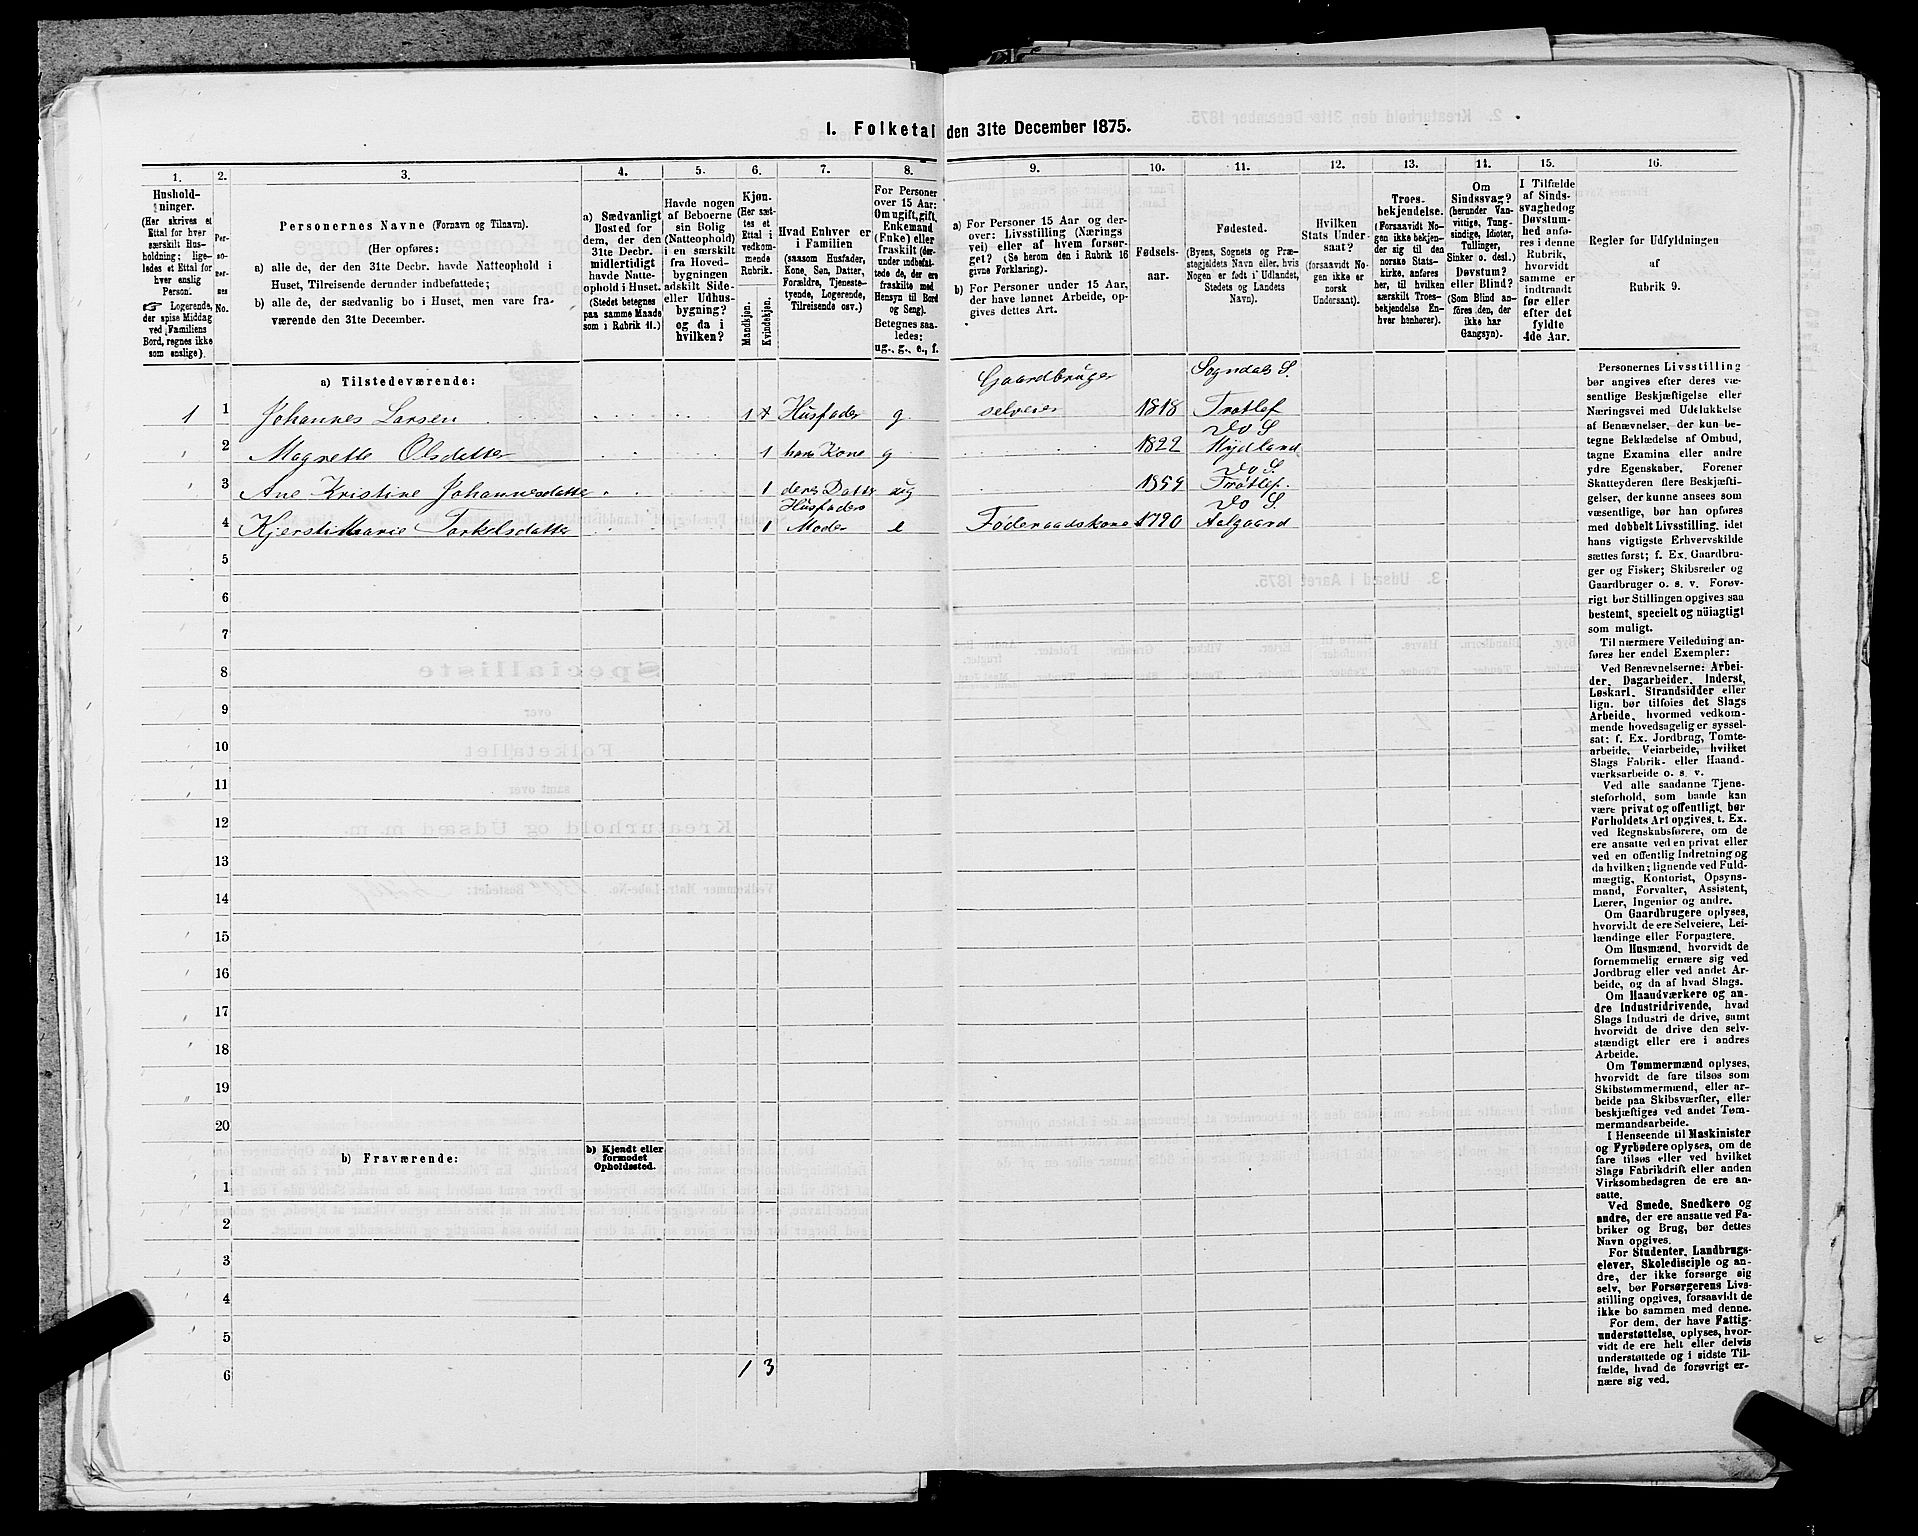 I. Folketal den 31te December 1875.
1. 2. 3. 4. 5. 6. 7. 8. 9. 10. 11. 12. 13. 14. 15. 16.
Hushold-
ninger.
(Her skrives et
Ettal for hver
særskilt Hus-
holdning; lige-
ledes et Ettal for
hver enslig
Person.
☞ Logerende,
der spise Middag
ved Familiens
Bord, regnes ikke
som enslige).
Per-
so-
ner-
nes
No.
Personernes Navne (Fornavn og Tilnavn).
(Her opføres:
a) alle de, der den 31te Decbr. havde Natteophold i
Huset, Tilreisende derunder indbefattede;
b) alle de, der sædvanlig bo i Huset, men vare fra-
værende den 31te December.
a) Sædvanligt
Bosted for
dem, der den
31te Decbr.
midlertidigt
havde Natte-
ophold i Huset.
(Stedet betegnes
paa samme Maade
som i Rubrik 11.)
Havde nogen
af Beboerne
sin Bolig
(Natteophold)
i en særskilt
fra Hoved-
bygningen
adskilt Side-
eller Udhus-
bygning?
og da i
hvilken?
Kjøn.
(Her sæt-
tes et
Ettal i
vedkom-
mende
Rubrik.
Mandkjøn.
Kvindekjøn.
Hvad Enhver er
i Familien
(saasom Husfader,
Kone, Søn, Datter,
Forældre, Tjeneste-
tyende, Logerende,
Tilreisende osv.)
For Personer
over 15 Aar:
Om ugift, gift,
Enkemand
(Enke) eller
fraskilt (der-
under indbefat-
tede de, der ere
fraskilte med
Hensyn til Bord
og Seng).
Betegnes saa-
ledes:
ug., g., e., f.
a) For Personer 15 Aar og der-
over: Livsstilling (Nærings
vei) eller af hvem forsør-
get? (Se herom den i Rubrik 16
givne Forklaring).
b) For Personer under 15 Aar,
der have lønnet Arbeide, op-
gives dettes Art.
Fødsels-
aar.
Fødested.
(Byens, Sognets og Præ-
stegjeldets Navn eller, hvis
Nogen er født i Udlandet,
Stedets og Landets
Navn).
Hvilken
Stats Under-
saat?
(forsaavidt No-
gen ikke er
norsk
Undersaat).
Troes-
bekjendelse.
(Forsaavidt No-
gen ikke bekjen-
der sig til den
norske Stats-
kirke, anføres
her, til hvilken
særskilt Troes-
bekjendelse En-
hver henhører).
Om
Sindssvag?
(herunder Van-
vittige, Tung-
sindige, Idioter,
Tullinger,
Sinker o. desl.)
Døvstum?
eller Blind?
(Som Blind an-
føres den, der
ikke har
Gangsyn).
I Tilfælde
af Sinds-
svaghed og
Døvstum-
hed anføres
i denne
Rubrik,
hvorvidt
samme er
indtraadt
før eller
efter det
fyldte
4de Aar.
Regler for Udfyldningen
af
Rubrik 9.
a) Tilstedeværende:
1 1 Johannes Larsen 1 Husfader g Gaardbruger selveier 1818 Sogndals S. Frøtlef
2 Magrette Olsdatter 1 hans Kone g 1822 Do S. Hydland
3 Ane Kristine Johannesdatter 1 deres Datter ug 1859 Do S. Frøtlef
4 Kjersti Marie Torkelsdatter 1 Husfaders Moder e Føderaadskone 1790 Do S. Aalgaard
5
6
7
8
9
10
11
12
13
14
15
16
17
18
19
20
b) Fraværende:
b) Kjendt eller
formodet
Opholdssted.
1
2
3
4
5
6
1 3
Personernes Livsstilling
bør angives efter deres væ-
sentlige Beskjæftigelse eller
Næringsvei med Udelukkelse
af Benævnelser, der kun be-
tegne Beklædelse af Ombud,
tagne Examina eller andre
ydre Egenskaber. Forener
Skatteyderen flere Beskjæfti-
gelser, der kunne ansees som
væsentlige, bør han opføres
med dobbelt Livsstilling, idet
hans vigtigste Erhvervskilde
sættes først; f. Ex. Gaardbru-
ger og Fisker; Skibsreder og
Gaardbruger o. s. v. Forøv-
rigt bør Stillingen opgives saa
bestemt, specielt og nöiagtigt
som muligt.
Til nærmere Veiledning an-
føres her endel Exempler:
Ved Benævnelserne: Arbei-
der, Dagarbeider, Inderst,
Løskarl, Strandsidder eller
lign. bør tilføies det Slags
Arbeide, hvormed vedkom-
mende hovedsagelig er syssel-
sat; f. Ex. Jordbrug, Tomte-
arbeide, Veiarbeide, hvilket
Slags Fabrik- eller Haand-
værksarbeide o. s. v.
Ved alle saadanne Tjene-
steforhold, som baade kan
være privat og offentligt, bør
Forholdets Art opgives, t. Ex.
ved Regnskabsførere, om de
ere ansatte ved en privat eller
ved en offentlig Indretning og
da hvilken; lignende ved Fuld-
mægtig, Kontorist, Opsyns-
mand, Forvalter, Assistent,
Lærer, Ingeniør og andre.
Om Gaardbrugere oplyses,
hvorvidt de ere Selveiere, Lei-
lændinge eller Forpagtere.
Om Husmænd, hvorvidt de
fornemmelig ernære sig ved
Jordbrug eller ved andet Ar-
beide, og da af hvad Slags.
Om Haandværkere og an-
dre Industridrivende, hvad
Slags Industri de drive, samt
hvorvidt de drive den selv-
stændigt eller ere i andres
Arbeide.
Om Tømmermænd oplyses,
hvorvidt de fare tilsøs som
Skibstømmermænd, eller ar-
beide paa Skibsværfter, eller
beskjæftiges ved andet Tøm-
mermandsarbeide.
I Henseende til Maskinister
og Fyrbødere oplyses, om de
fare tilsøs eller ved hvilket
Slags Fabrikdrift eller anden
Virksomhedsgren de ere an-
satte.
Ved Smede, Snedkere og
andre, der ere ansatte ved Fa-
briker og Brug, bør dettes
Navn opgives.
For Studenter, Landbrugs-
elever, Skoledisciple og an-
dre, der ikke forsørge sig
selv, bør Forsørgerens Livs-
stilling opgives, forsaavidt de
ikke bo sammen med denne.
For dem, der have Fattig-
understøttelse, oplyses, hvor-
vidt de ere helt eller delvis
understøttede og i sidste Til-
fælde, hvad de forøvrigt er-
nære sig ved.